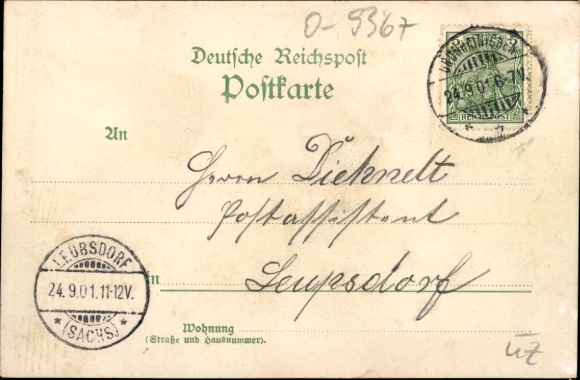 O-9367
Deutsche Reichspost
Postkarte
GROSSHARTMANNSDORF
24.9.01 6-7N.
REICHSPOST
An
Herrn Dicknelt
Postassistent
in Leupsdorf
LEUBSDORF
24.9.01.11-12V.
* (SACHS) *
Wohnung
(Straße und Hausnummer).
UZ